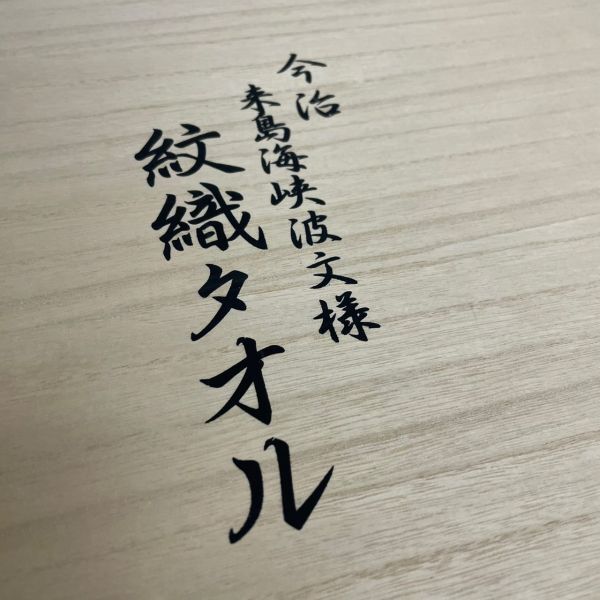 今治
来島海峡波文様
紋織タオル